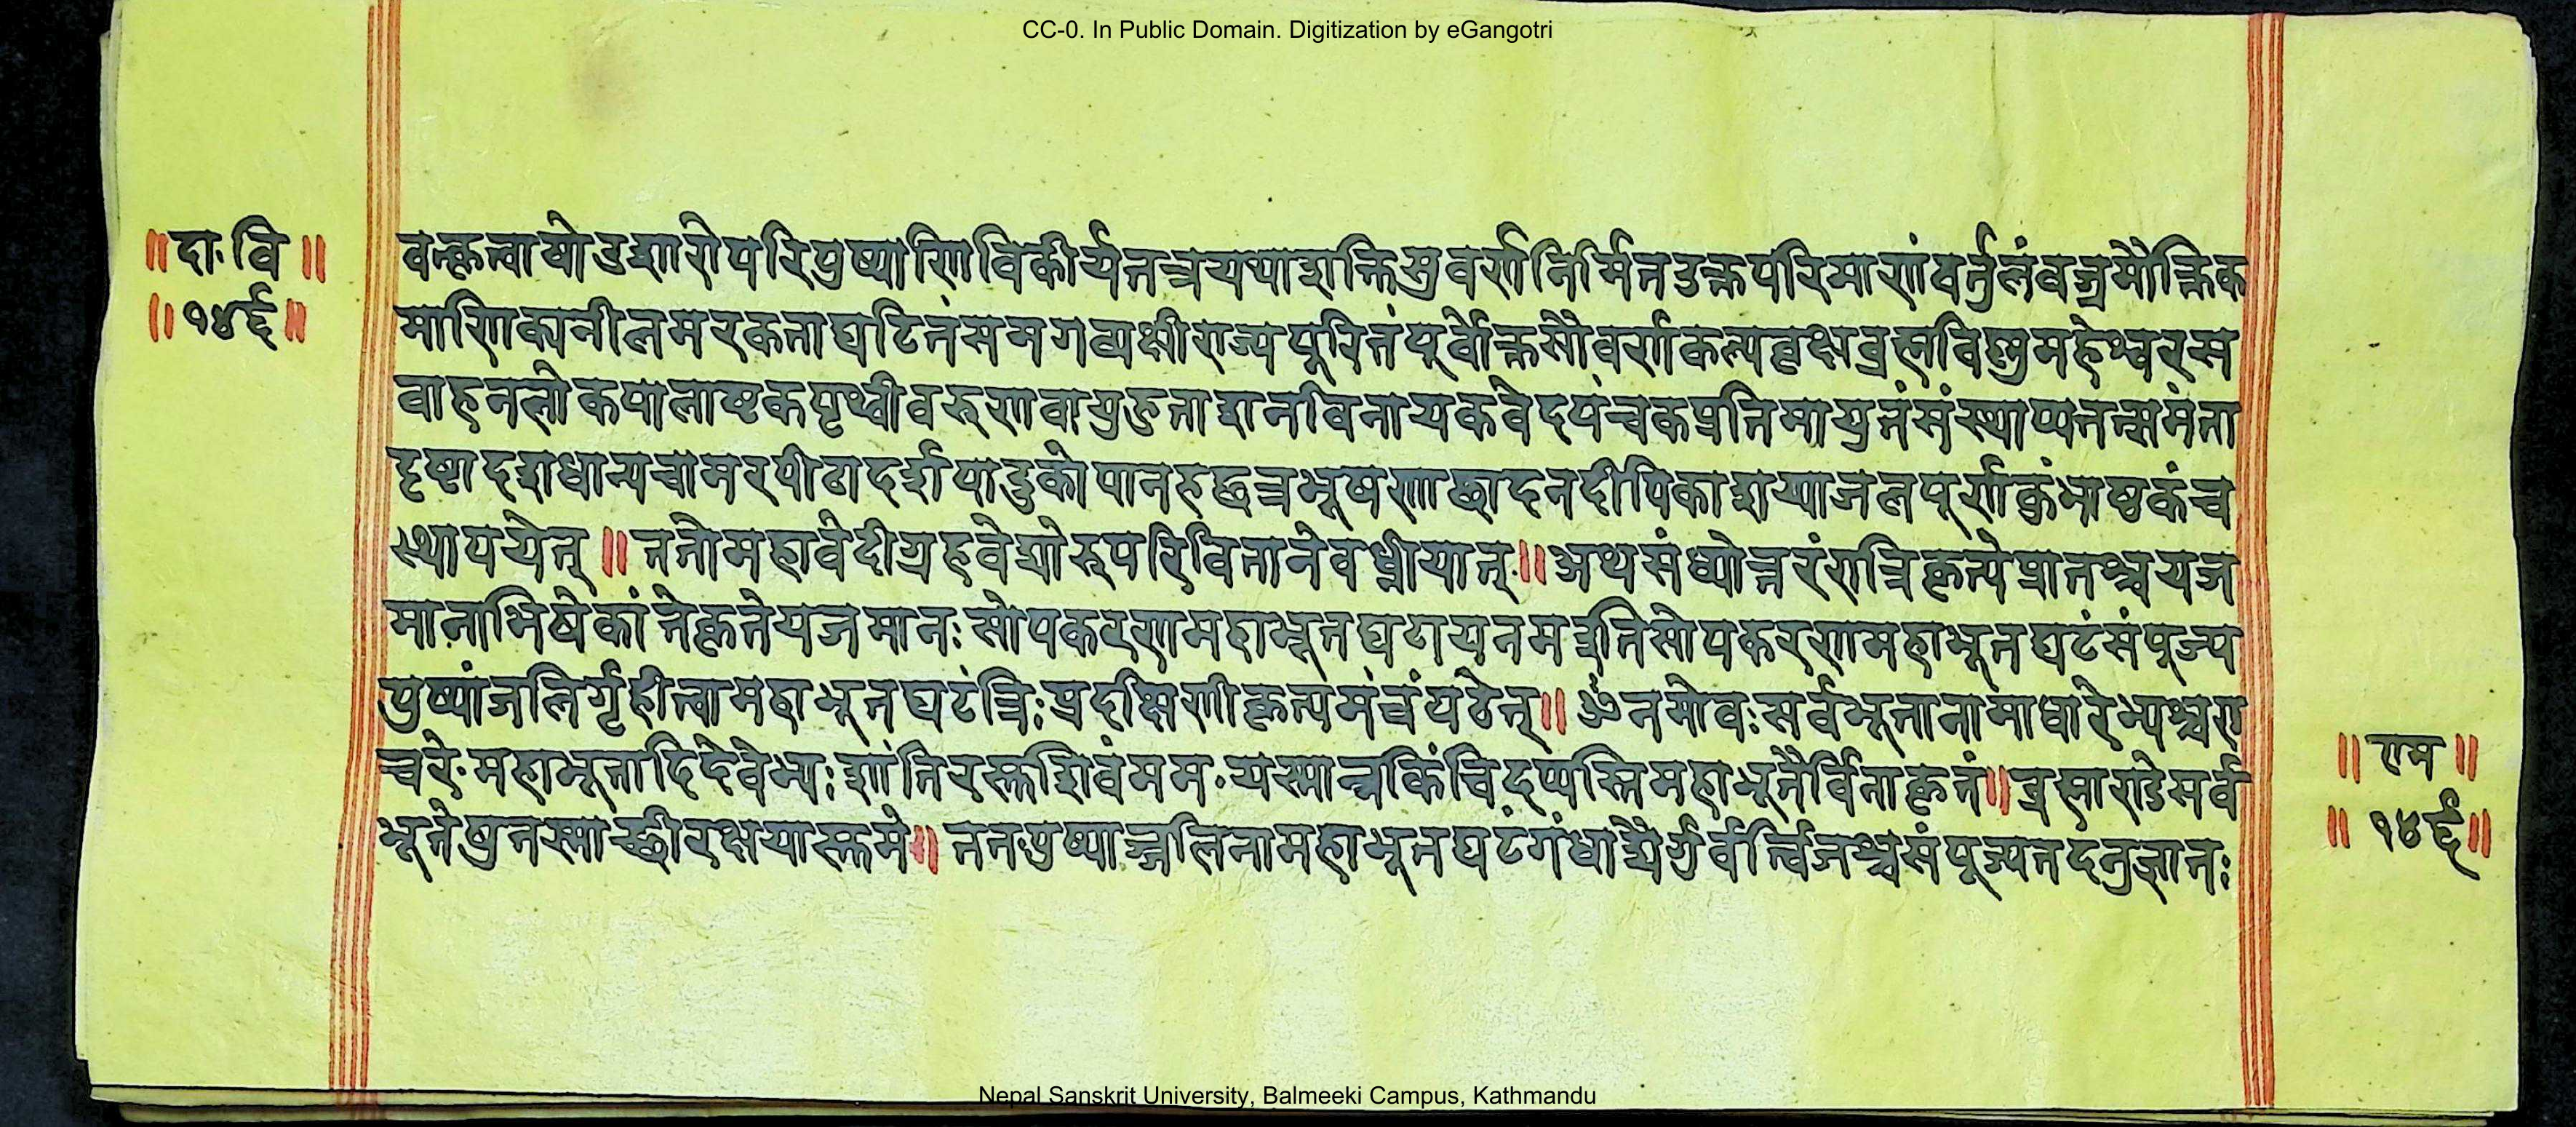 CC-0. In Public Domain. Digitization by eGangotri
॥दा.वि॥
॥१४६॥
वत्कृत्वाषोडशारोपरिपुष्पाणिविकीर्यतत्रयथाशक्तिसुवर्णनिर्मितउक्तपरिमाणंवर्तुलंवज्रमौक्तिक
माणिक्यनीलमरकताघटितंसमगव्यक्षीराज्यपूरितंपूर्वोक्तसौवर्णकल्पवृक्षब्रह्मविष्णुमहेश्वरस
वाहनलोकपालाष्टकपृथ्वीवरुणवायुहुताशनविनायकवेदपंचकप्रतिमायुतंसंस्थाप्यतत्समंता
दृष्टादशधान्यचामरपीठादर्शपादुकोपानहछत्रभूषणाछादनदीपिकाशय्याजलपूर्णकुंभाष्टकंच
स्थापयेत्॥ततोमहावेदीग्रहवेद्योरुपरिवितानेवध्नीयात्॥अथसंध्योत्तरंरात्रिकृत्येप्रातश्चयज
मानाभिषेकांतेकृतेयजमानःसोपकरणमहाभूतघटायनमइतिसोपकरणमहाभूतघटंसंपूज्य
पुष्पांजलिर्गृहीत्वामहाभूतघटंत्रिःप्रदक्षिणीकृत्यमंत्रंपठेत्॥ॐनमोवःसर्वभूतानामाधारेभ्यश्चरा
चरे.महाभूतादिदेवेभ्यःशांतिरस्तुशिवंमम.यस्मान्नकिंचिदप्यस्तिमहाभूतैर्विनाकृतं॥ब्रह्माण्डेसर्व
भूतेषुतस्माच्छ्रीरक्षयास्तुमे॥ततपुष्पाञ्जलिनामहाभूतघटंगंधाद्यैर्गुर्वर्त्विजश्चसंपूज्यतदनुज्ञातः
॥राम॥
॥१४६॥
Nepal Sanskrit University, Balmeeki Campus, Kathmandu